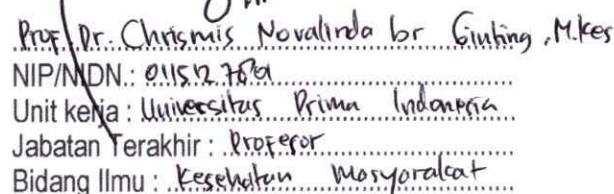 Prof Dr. Chrismis Novalinda br Ginting, M.Kes
NIP/NIDN.: 0115127801
Unit kerja : Universitas Prima Indonesia
Jabatan Terakhir : Profesor
Bidang Ilmu : Kesehatan Masyarakat